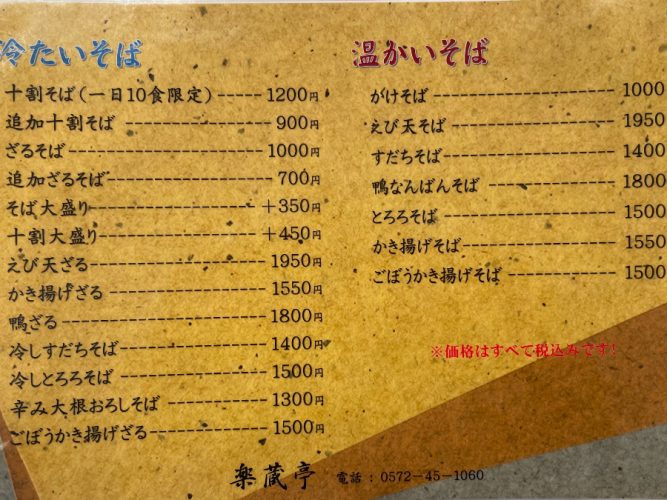 冷たいそば
十割そば(一日10食限定)-----1200円
追加十割そば----------900円
ざるそば----------1000円
追加ざるそば----------700円
そば大盛り----------+350円
十割大盛り----------+450円
えび天ざる----------1950円
かき揚げざる----------1550円
鴨ざる----------1800円
冷しすだちそば----------1400円
冷しとろろそば----------1500円
辛み大根おろしそば----------1300円
ごぼうかき揚げざる----------1500円
温かいそば
がけそば----------1000
えび天そば----------1950
すだちそば----------1400
鴨なんばんそば----------1800
とろろそば----------1500
かき揚げそば----------1550
ごぼうかき揚げそば----------1500
※価格はすべて税込みです!
楽蔵亭 電話:0572-45-1060